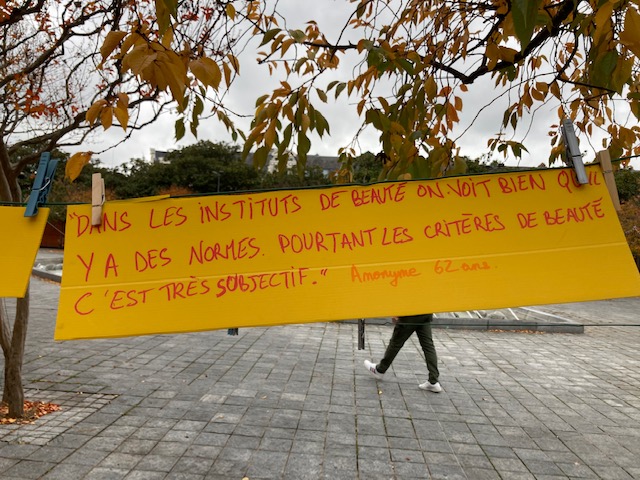 "DANS LES INSTITUTS DE BEAUTÉ ON VOIT BIEN QU'IL
Y A DES NORMES. POURTANT LES CRITÈRES DE BEAUTÉ
C'EST TRÈS SUBJECTIF." Anonyme 62 ans.